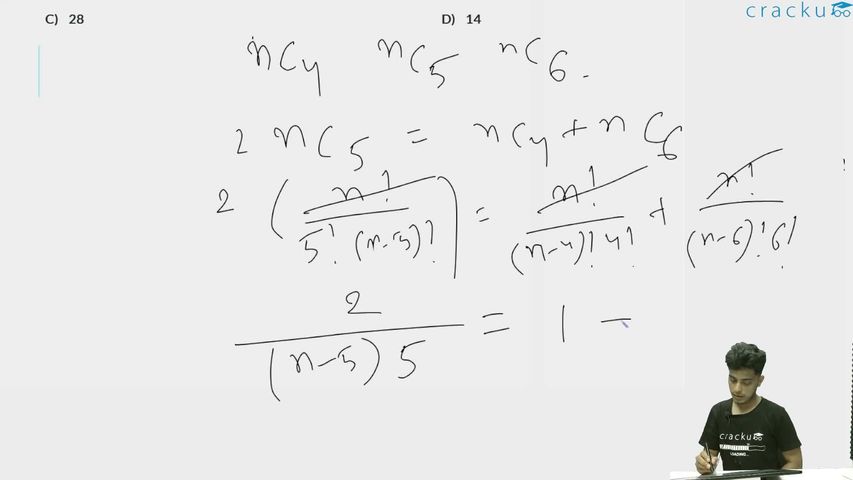 cracku
C) 28 D) 14
nC4 nC5 nC6.
2 nC5 = nC4 + nC6
2 (n!/5!(n-5)!) = n!/(n-4)!4! + n!/(n-6)!6!
2/(n-5)5 = 1 –
cracku
LOADING...